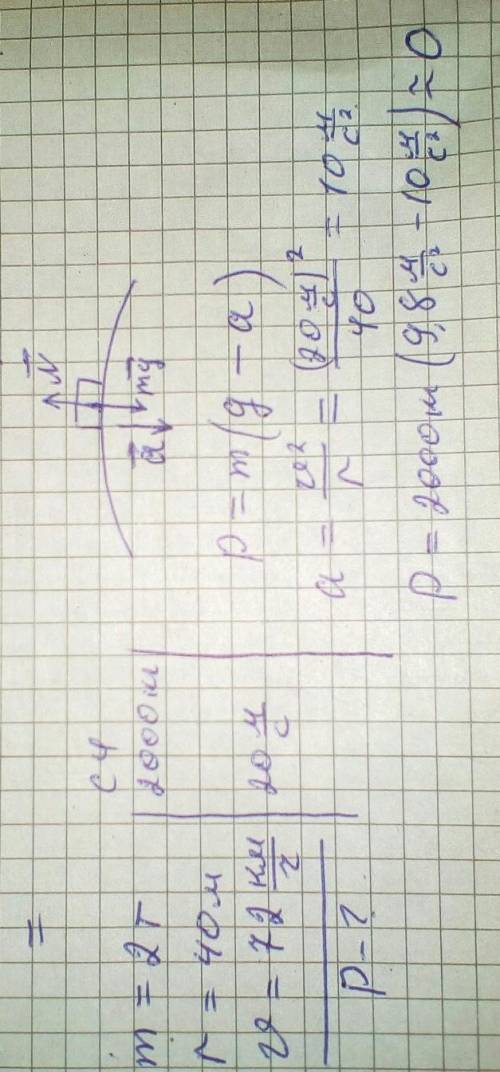 =
СЧ
m = 2т | 2000м
r = 40м
v = 72 км/г | 20 м/с
P - ?
N
a
mg
P = m(g - a)
a = v²/r = (20 м/с)²/40 = 10 м/с²
P = 2000м (9,8 м/с² - 10 м/с²) ≈ 0